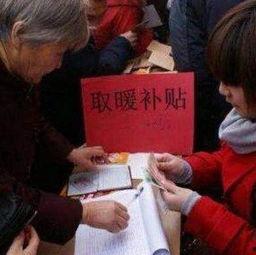 取暖补贴